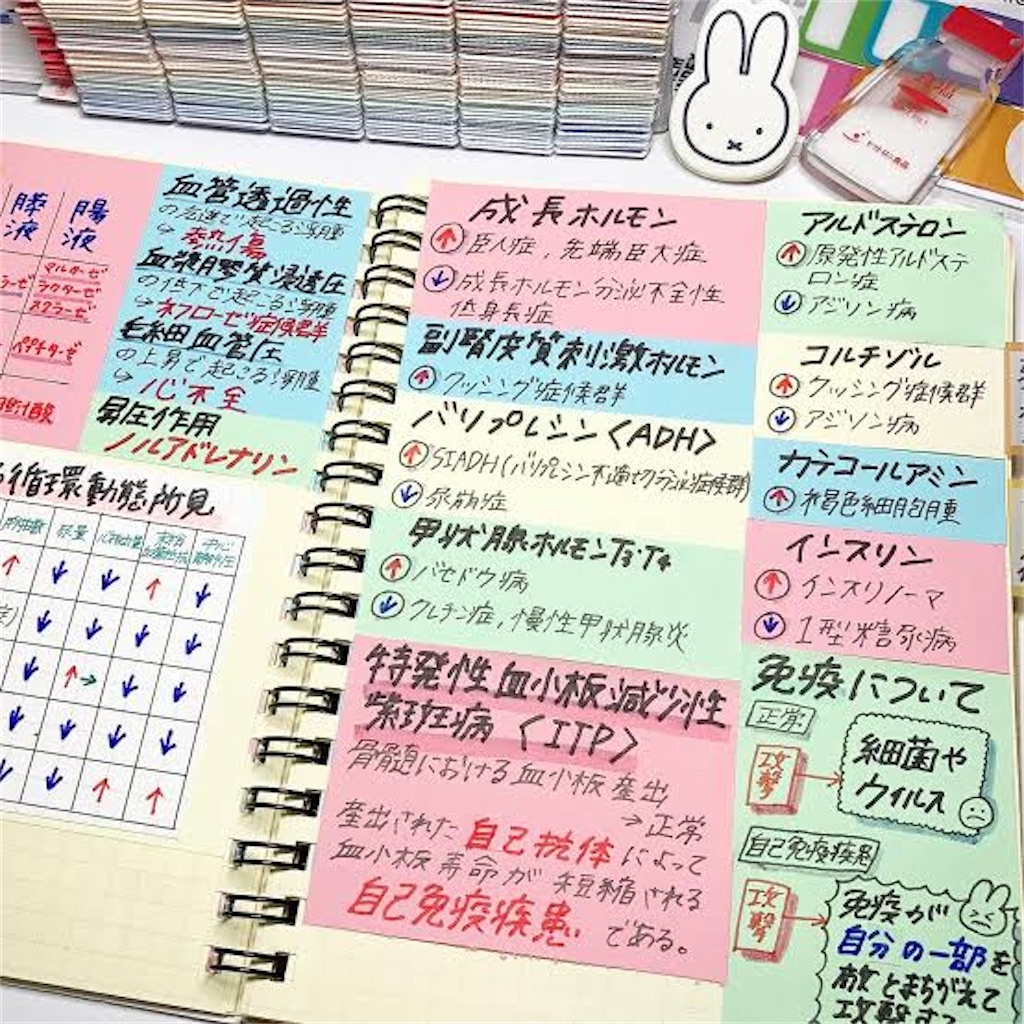 膵液
腸液
マルターゼ
ラクターゼ
スクラーゼ
ペプチターゼ
胆汁酸
血管透過性
の亢進で起こる浮腫
↳熱傷
血漿膠質浸透圧
の低下で起こる浮腫
↳ネフローゼ症候群
毛細血管圧
の上昇で起こる浮腫
↳心不全
昇圧作用
ノルアドレナリン
循環動態所見
尿量
心拍出量
↑ ↓ ↓ ↑ ↓
↓ ↓ ↓ ↓
↓ ↑→ ↓ ↓
↓ ↓ ↓ ↓
↓ ↓ ↑ ↑
成長ホルモン
↑ 巨人症,先端巨大症
↓ 成長ホルモン分泌不全性
低身長症
副腎皮質刺激ホルモン
↑ クッシング症候群
バソプレシン〈ADH〉
↑ SIADH(バソプレシン不適切分泌症候群)
↓ 尿崩症
甲状腺ホルモンT3・T4
↑ バセドウ病
↓ クレチン症,慢性甲状腺炎
特発性血小板減少性
紫斑病〈ITP〉
骨髄における血小板産出
→正常
産出された自己抗体によって
血小板寿命が短縮される
自己免疫疾患である。
アルドステロン
↑ 原発性アルドステ
ロン症
↓ アジソン病
コルチゾル
↑ クッシング症候群
↓ アジソン病
カテコールアミン
↑ 褐色細胞腫
インスリン
↑ インスリノーマ
↓ 1型糖尿病
免疫について
正常
攻撃 → 細菌や
ウイルス
自己免疫疾患
攻撃 → 免疫が
自分の一部を
敵とまちがえて
攻撃する